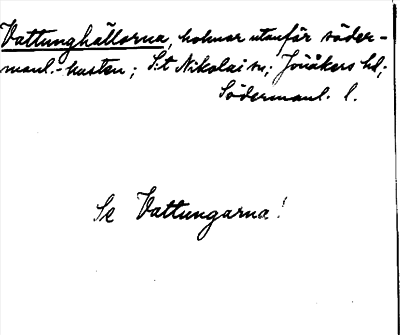 Vattunghällorna, holmar utanför söder-
manl.-kusten; S:t Nikolai sn; Jönåkers hd;
Södermanl. l.
Se Vattungarna!